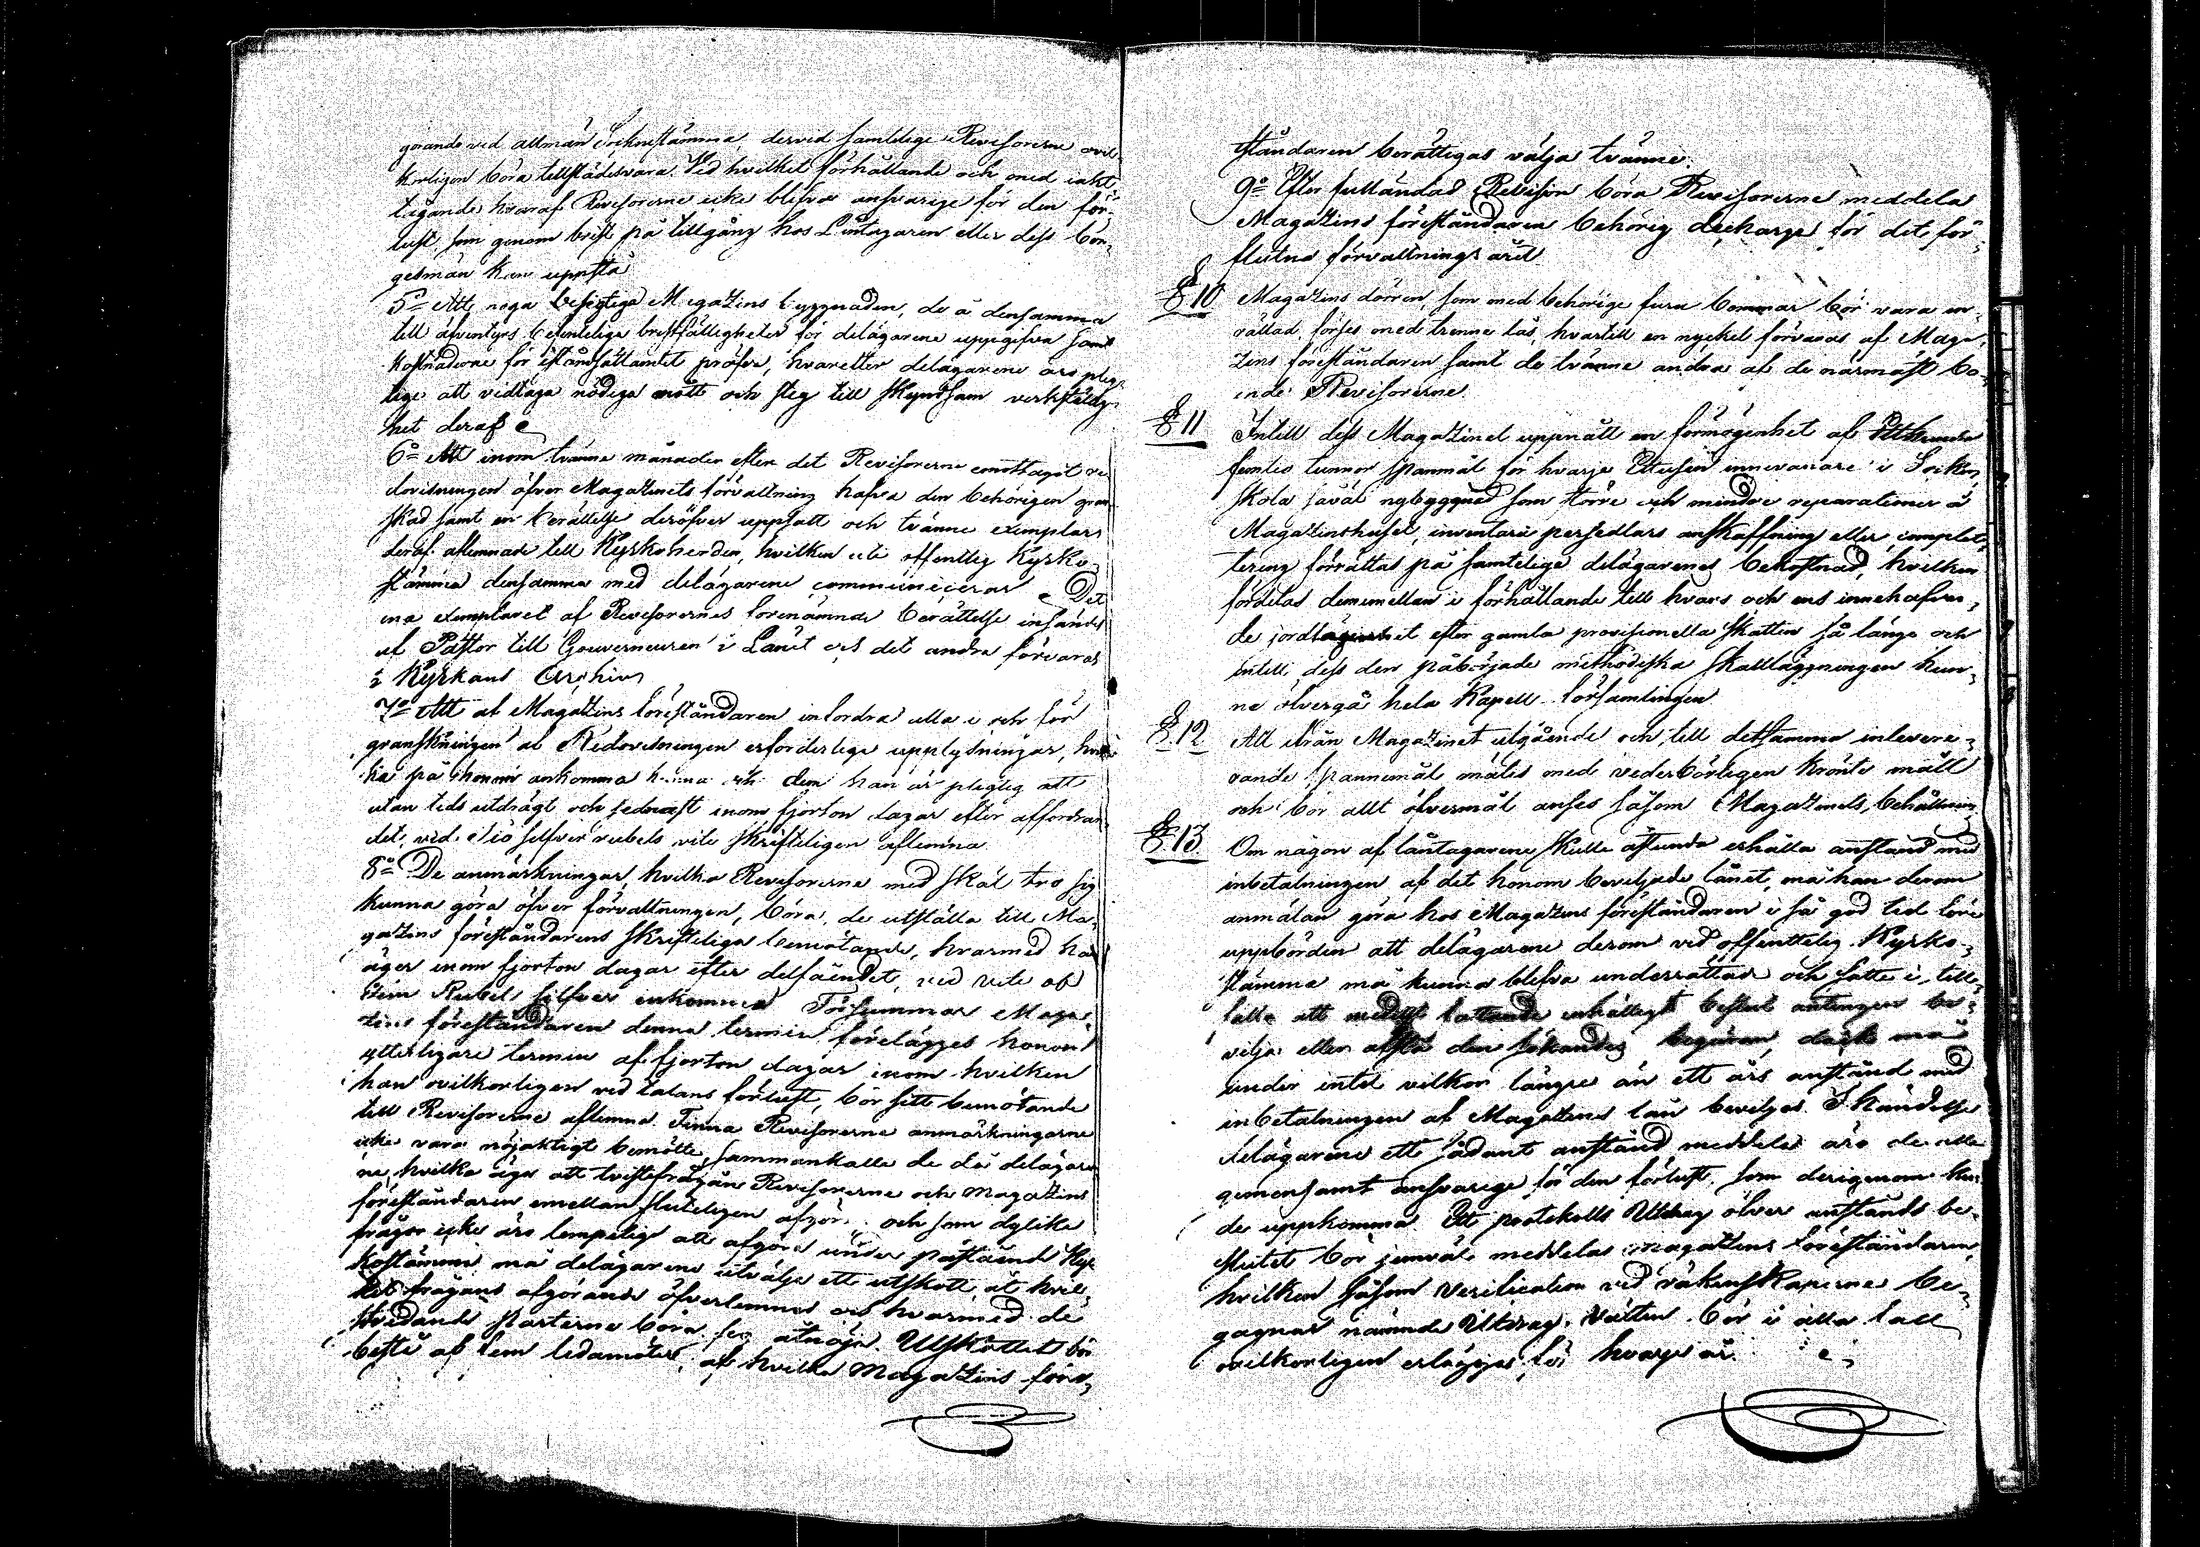 görande vid allmän Sockenstämma, dervid samtelige Revisorerne ovil-
korligen böra tillstädesvara. Vid hvilket förhållande och med iakt-
tagande hvaraf Revisorerne icke blifva ansvarige för den för-
lust, som genom brist på tillgång hos Låntagaren eller dess bor-
gesmän kan uppstå
5o Att noga besigtiga Magazins byggnaden, de å densamma
till äfventyrs befintelige bristfälligheter för delägarene uppgifva samt
kostnaderne för iståndsättandet pröfva, hvarefter delägarene äro pleg-
tige att vidtaga nödiga mått och steg till skyndsam verkställig-
het deraf
6o Att inom tvänne månader efter det Revisorerne emottagit re-
dovisningen öfver Magazinets förvaltning hafva den behörigen gran-
skad samt en berättelse deröfver uppsatt och tvänne exemplar
deraf aflemnade till Kyrkoherden, hvilken uti offentlig Kyrko-
stämma densamma med delägarene communicerar. Det
ena exemplaret af Revisorernes förenämnde berättelse insändes
af Pastor till Gouverneuren i Länet och det andra förvaras
i Kyrkans Archiv
7o Att af Magazins föreståndaren infordra alla i och för
granskningen af Redovisningen erforderlige upplysningar, hvil-
ka på honom ankomma och dem han är plegtig att
utan tids utdrägt och sednast inom fjorton dagar efter affordran-
det, vid tio silfver rubels vite skrifteligen aflemna.
8o De anmärkningar hvilka Revisorerne med skäl tro sig
kunna göra öfver förvaltningen, böra de utställa till Ma-
gazins föreståndarens skrifteliga bemötande, hvarmed han
äger inom fjorton dagar efter delfåendet, vid vite af
fem Rubel silfver inkomma. Försummar Maga-
zins föreståndaren denna termin förelägges honom
ytterligare termin af fjorton dagar inom hvilken
han ovilkorligen vid talans förlust, bör sitt bemötande
till Revisorerne aflemna. Finna Revisorerne anmärkningarne
icke vara nöjaktigt bemötte, sammankalle de då delägare-
ne, hvilka äga att tvistefrågan Revisorerne och Magazins
föreståndaren emellan sluteligen afgöra; och som dylike
frågor icke äro lämpelige att afgöra under påstående Kyr-
kostämma må delägarene utvälja ett utskott åt hvil-
ket frågans afgörande öfverlemnas och hvarmed de
tvistande parterne böra sig åtnöja. Utskottet bör
bestå af fem ledamöter, af hvilka Magazins före-
ståndaren berättigas välja tvänne.
9o Efter fulländad Revision böra Revisorerne meddela
Magazins föreståndaren behörig decharge för det för-
flutna förvaltnings året.
§ 10 Magazins dörren, som med behörige fura bommar bör vara in-
rättad, förses med trenne lås, hvartill en nyckel förvaras af Maga-
zins föreståndaren samt de tvänne andra af de närmast bo-
ende Revisorerne.
§ 11 Intill dess Magazinet uppnått en förmögenhet af Etthundra
femtio tunnor spannmål för hvarje Ettusen innevånare i Socken,
skola såväl nybyggnad som större och mindre reparationer å
Magazinshuset, inventarii persedlars anskaffning eller complet-
tering förrättas på samtelige delägarenes bekostnad, hvilken
fördelas dememellan i förhållande till hvars och ens innehafvan-
de jordlägenhet efter gamla provisionella skatten så länge och
intill dess den påbörjade methodiska skattläggningen hun-
ne öfvergå hela Kapell församlingen
§ 12 Allt ifrån Magazinet utgående och till detsamma inlevere-
rande spannemål mätes med vederbörligen krönte mått
och bör allt öfvermål anses såsom Magazinets behållning
§ 13. Om någon af låntagarene skulle åstunda erhålla anstånd med
inbetalningen af det honom beviljade lånet, må han derom
anmälan göra hos Magazins föreståndaren i så god tid före
uppbörden att delägarene derom vid offenttelig Kyrko-
stämma må kunna blifva underrättade och satte i till-
fälle att medelst fattande enhälligt beslut antingen be-
vilja eller afslå den sökandes begäran, dock må
under intet vilkor längre än ett års anstånd med
inbetalningen af Magazins lån beviljas. I händelse
delägarene ett sådant anstånd meddela äro de alle
gemensamt ansvarige för den förlust, som derigenom kun-
de uppkomma. Ett protokolls Utdrag öfver anstånds be-
slutet bör jemväl meddelas Magazins föreståndaren
hvilken såsom verification vid räkenskaperne be-
gagnar nämnde Utdrag. Räntan bör i alla fall
ovilkorligen erläggas för hvarje år.